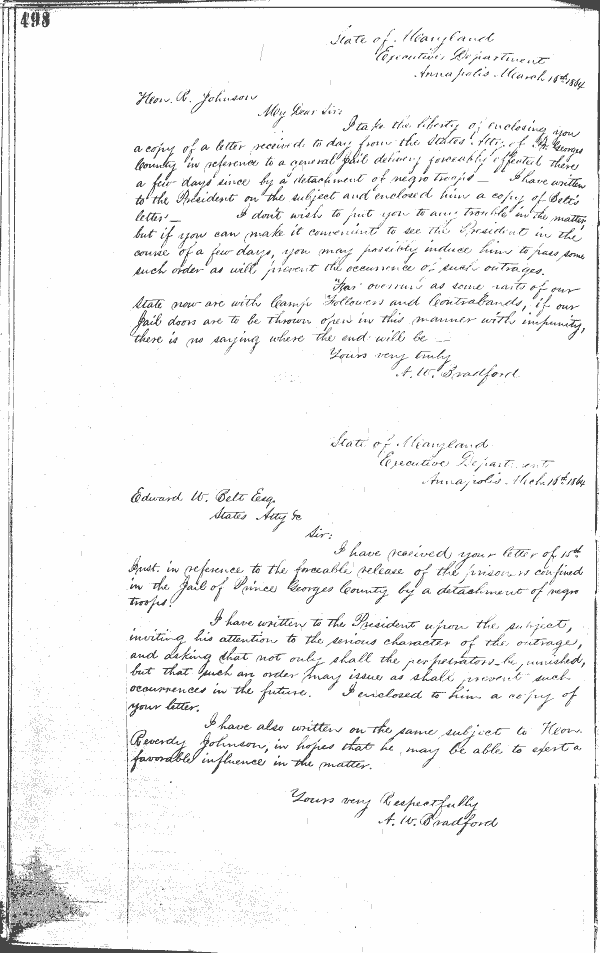 498
State of Maryland
Executive Department
Annapolis March 16th 1864
Hon. R. Johnson
My Dear Sir:
I take the liberty of enclosing you
a copy of a letter received to day from the States Atty. of Pr. Georges
County in reference to a general Jail delivery forceably effected there
a few days since by a detachment of negro troops — I have written
to the President on the subject and enclosed him a copy of Belt's
letter — I don't wish to put you to any trouble in the matter
but if you can make it convenient to see the President in the
course of a few days, you may possibly induce him to pass some
such order as will prevent the occurrence of such outrages.
overrun as some parts of our
State now are with Camp Followers and Contrabands, if our
Jail doors are to be thrown open in this manner with impunity,
there is no saying where the end will be —
Yours very truly
A. W. Bradford
State of Maryland
Executive Department
Annapolis Mch. 16th 1864
Edward W. Belt Esq.
States Atty &c
Sir:
I have received your letter of 15th
Inst. in reference to the forceable release of the prisoners confined
in the Jail of Prince Georges County by a detachment of negro
troops.
I have written to the President upon the subject,
inviting his attention to the serious character of the outrage,
and asking that not only shall the perpetrators be punished,
but that such an order may issue as shall prevent such
ocurrences in the future. I enclosed to him a copy of
your letter.
I have also written on the same subject to Hon.
Reverdy Johnson, in hopes that he may be able to exert a
favorable influence in the matter.
Yours very Respectfully
A. W. Bradford